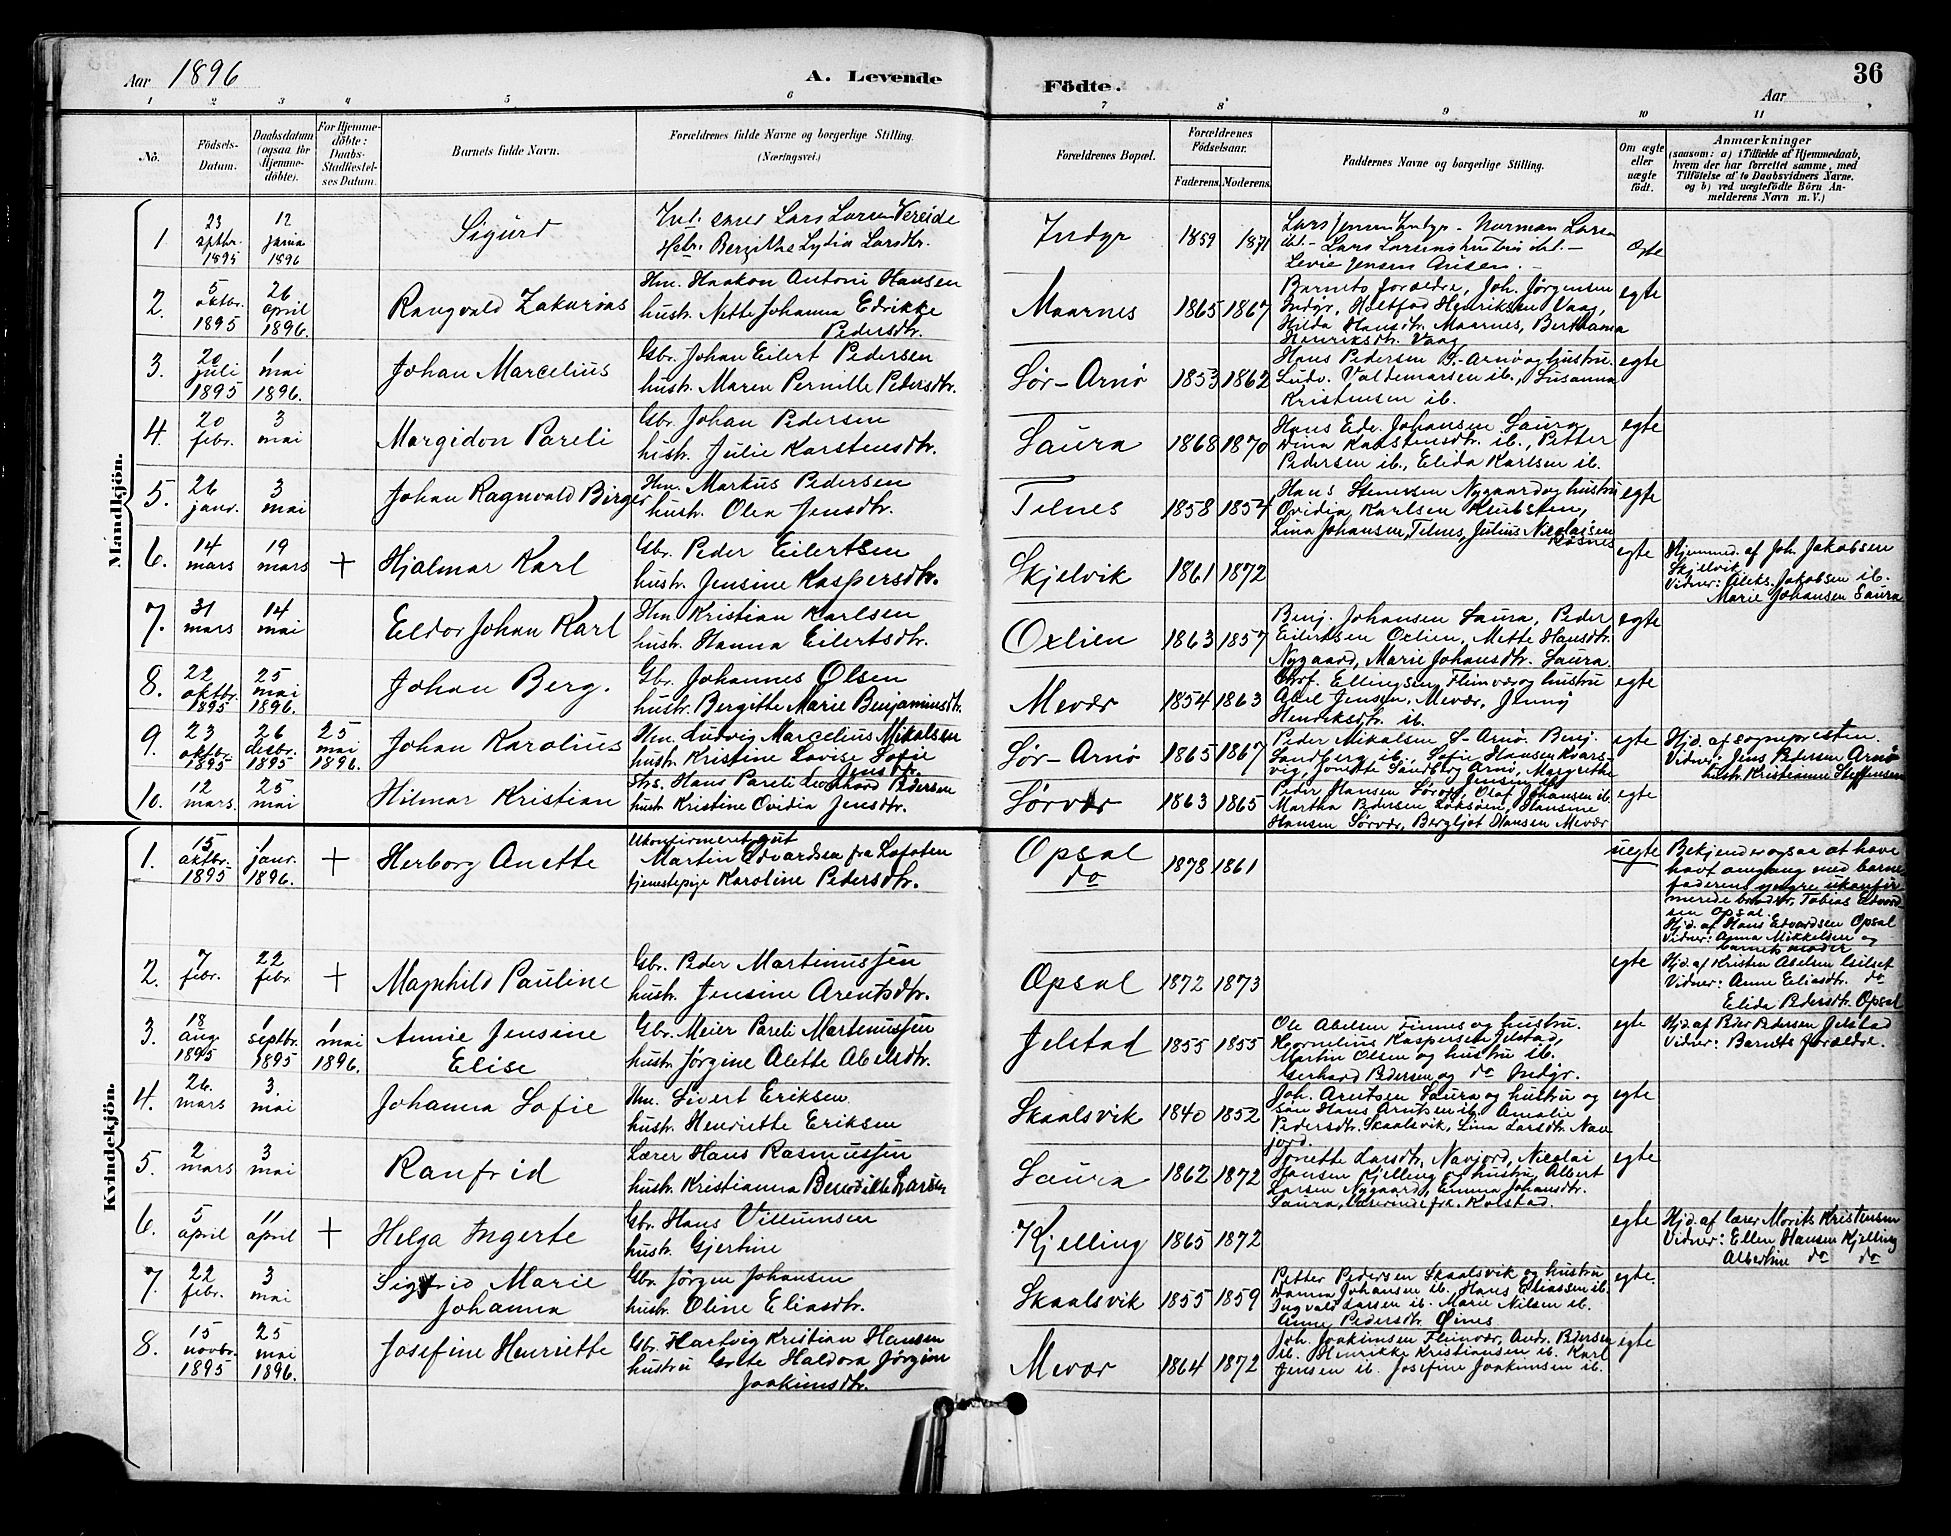 Aar 1896
A. Levende
Födte.
Aar
36
1 2 3 4 5 6 7 8 9 10 11
No.
Födsels-
Datum.
Daabsdatum
(ogsaa for
Hjemme-
döbte).
For Hjemme-
döbte:
Daabs-
Stadfæstel-
ses Datum.
Barnets fulde Navn.
Forældrenes fulde Navne og borgerlige Stilling.
(Næringsvei.)
Forældrenes Bopæl.
Forældrenes
Födselsaar.
Faderens. Moderens.
Faddernes Navne og borgerlige Stilling.
Om ægte
eller
uægte
födt.
Anmærkninger
(saasom: a) i Tilfælde af Hjemmedaab,
hvem der har forrettet samme, med
Tilföielse af to Daabsvidners Navne.
og b) ved uægtefödte Börn An-
melderens Navn m. V.)
Mandkjön.
1
23
sptbr.
1895
12
janua
1896
Sigurd
Ind. Lars Larsen Vereide
Hstr. Bergithe Lydia Larsdtr.
Indyr
1859 1871
Lars Jensen Indyr - Norman Larsen
ibd. - Lars Larsens hustru ibd. -
Levie Jensen
egte
2.
5
oktbr.
1895
26
april
1896.
Rangvald Zakarias
Hm. Haakon Antoni Hansen
hustr. Nette Johanna Edrikke
Pedersdtr.
Maarnes
1865 1867
Barnets forældre, Joh. Jørgensen
Indyr, Heltfad Henriksen Vaag,
Hilda Hansdtr. Maarnes, Berthanna
Henriksdtr. Vaag
egte
3.
20
juli
1895
1
mai
1896.
Johan Marcelius
Gbr. Johan Eilert Pedersen
hustr. Maren Pernille Pedersdtr.
Sør-Arnø
1853 1862
Hans Pedersen S.-Arnø og hustru.
Ludv. Valdemarsen ib., Susanna
Kristensen ib.
egte
4.
20
febr.
3
mai
Margidon Pareli
Gbr. Johan Pedersen
hustr. Julie Karstensdtr.
Saura
1868 1870
Hans Edv. Johansen Saura,
Dina Karstensdtr. ib., Petter
Pedersen ib., Elida Karlsen ib.
egte
5.
26
janr.
3
mai
Johan Ragnvald Birger
Hm. Markus Pedersen
hustr. Olea Jensdtr.
Telnes
1858 1854
Hans Stenersen Nygaard og hustru
Ovidia, Karlsen Klubsten,
Lina Johansen, Telnes, Julius Nicolaisen
Røsnes
egte
6.
14
mars
19
mars
+
Hjalmar Karl
Gbr. Peder Eilertsen
hustr. Jensine Kaspersdtr.
Skjelvik
1861 1872
egte
Hjemmed. af Joh. Jakobsen
Skjelvik
Vidner: Aleks. Jakobsen ib.
Marie Johansen Saura
7.
31
mars
14
mai
Eldor Johan Karl
Hm Kristian Karlsen
hustr. Hanna Eilertsdtr.
Oxlien
1863 1857
Benj. Johansen Saura, Peder
Eilertsen Oxlien, Mette Hansdtr.
Nygaard, Marie Johansdtr. Saura.
egte
8.
22
oktbr.
1895
25
mai
1896.
Johan Berg.
Gbr. Johannes Olsen
hustr. Bergitte Marie Benjaminsdtr.
Mevær
1854 1863
Chrf. Ellingsen Fleinvær og hustru
Abel Jensen, Mevær, Jenny
Henriksdtr. ib.
egte
9.
23
oktbr.
1895
26
desbr.
1895
25
mai
1896.
Johan Karolius
Hm. Ludvig Marcelius Mikalsen
hustr. Kristine Lovise Sofie
Jensdtr.
Sør-Arnø
1865 1867
Peder Mikalsen S-Arnø. Benj.
Sandberg ib., Sofie Hansen Kvars-
vig, Jonette Sandberg Arnø, Margrithe
Jensen
egte
Hjd. af sogneprsten.
Vidner: Jens Pedersen Arnø
hustr. Kristianne Steffensen
10.
12
mars.
25
mai
Hilmar Kristian
Hans Pareli Leonhard Pedersen
hustr. Kristine Ovidia Jensdtr.
Sørvær
1863 1865
Peder Hansen Sørvær, Olaf Johansen ib.
Martha Pedersen, Hansine
Hansen Sørvær, Bergljot Hansen Mevær
egte
Kvindekjön.
1.
15
oktbr.
1895
1
janr.
1896.
+
Herborg Anette
Ukonfirmeret gut
Martin Edvardsen fra Lofoten
tjenestepige Karoline Pedersdtr.
Opsal
do
1878 1861
uegte
Bekjender ogsaa at have
havt omgang med barne-
faderens yngre ukonfir-
merede broder, Tobias Edvard-
sen Opsal.
Hjd. af Hans Edvardsen Opsal
Vidner: Anna Mikkelsen og
barnets moder
2.
7
febr.
22
febr
+
Magnhild Pauline
Gbr. Peder Martinussen
hustr. Jensine Arentsdtr.
Opsal
1872 1873
egte
Hjd. af Kristen Abelsen Eilset
Vidner: Anne Eliasdtr. do
Elida Pedersdtr. Opsal
3.
18
aug.
1895
1
septbr.
1895
1
mai
1896.
Annie Jensine
Elise
Gbr. Meier Pareli Martinussen
hustr. Jørgine Alette Abelsdtr.
Jelstad
1855 1855
Ole Abelsen Finnes og hustru.
Kornelius Kaspersen Jelstad,
Martin Olsen og hustru ib.
Gerhard Pedersen og do Indyr.
egte
Hjd. af Peder Pedersen Jelstad
Vidner: Barnets forældre.
4.
26.
mars
3.
mai
Johanna Sofie
Hm. Sivert Eriksen
hustr. Henriette Eriksen
Skaalsvik
1840 1852
Joh. Arntsen Saura og hustru og
søn Hans Arntsen ib. Amalie
Pedersdtr. Skaalsvik, Lina Larsdtr. Nav
jord.
egte
5.
2
mars
3
mai
Ranfrid
Lærer Hans Rasmussen
hustr. Kristianna Benedikte Larsen
Saura
1862 1872
Jonette Larsdtr, Navjord, Nicolai
Hansen Kjelling og hustru, Albert
Larsen Nygaard, Emma Johansdtr.
Saura, Kolstad.
egte
6.
5
april
11
april
+
Helga Ingerte
Gbr. Hans Villumsen
hustr. Gjertine
Kjelling
1865 1872
egte
Hjd. af lærer Morits Kristensen
Vidner: Ellen Hansen Kjelling
Albertine do do
7.
22
febr.
3
mai
Sigfrid Marie
Johanna
Gbr. Jørgen Johansen
hustr. Oline Eliasdtr.
Skaalsvik
1855 1859
Petter Pedersen Skaalsvik og hustru
Danna Johansen ib. Hans Eliassen ib.
Ingvald Larsen ib. Marie Nilsen ib.
Anne Pedersdtr. Øines
egte.
8.
15
novbr.
1895
25
mai
1896.
Josefine Henriette
Gbr. Hartvig Kristian Hansen
hustru Grete Haldora Jørgine
Joakimsdtr.
Mevær
1864 1872
Joh. Joakimsen Fleinvær, Andr. Pedersen
ib. Henrikke Kristiansen ib. Karl
Jensen ib. Josefine Joakimsen ib.
egte